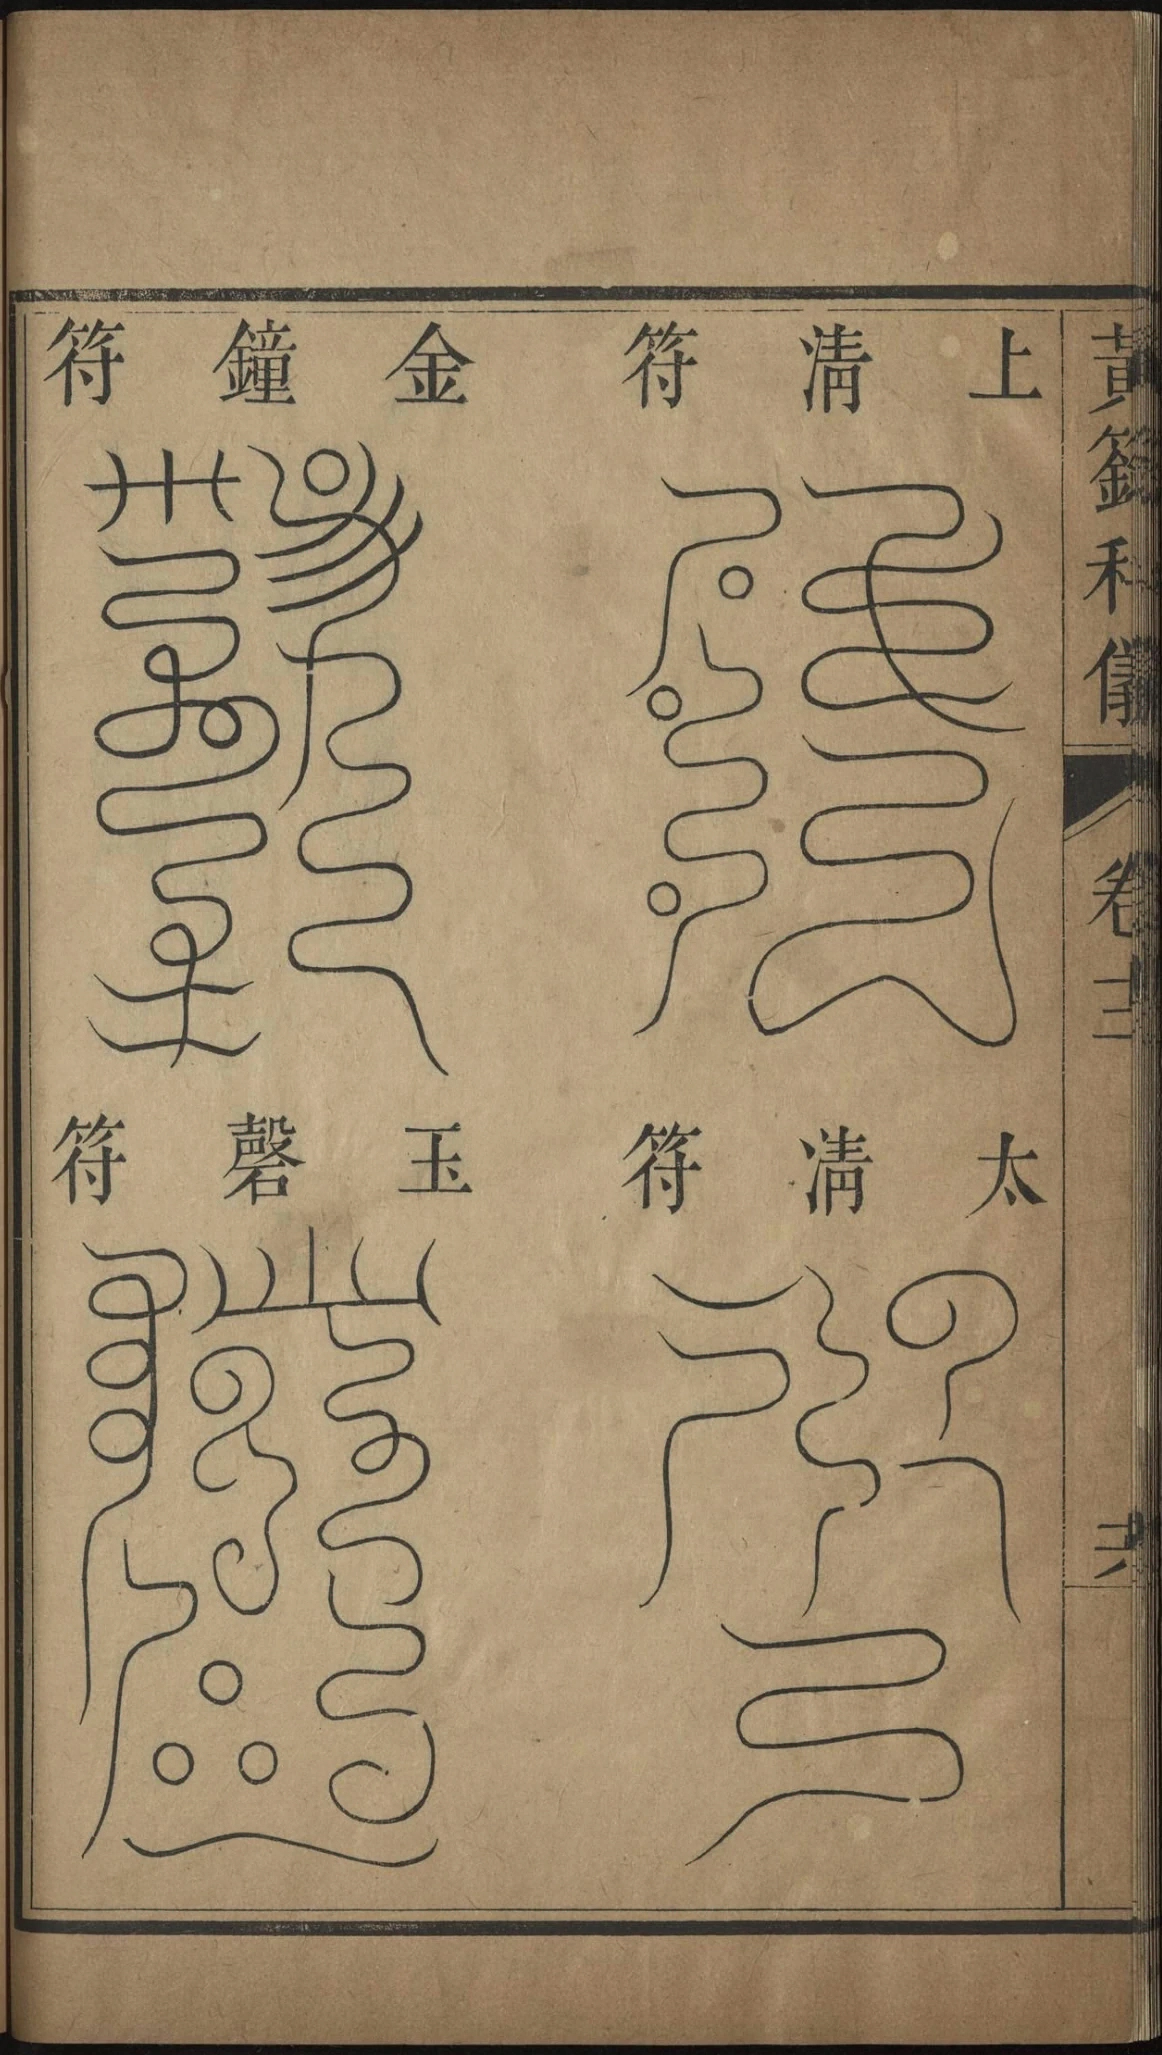 黃籙科儀
卷十二
十六
上清符
太清符
金鐘符
玉磬符